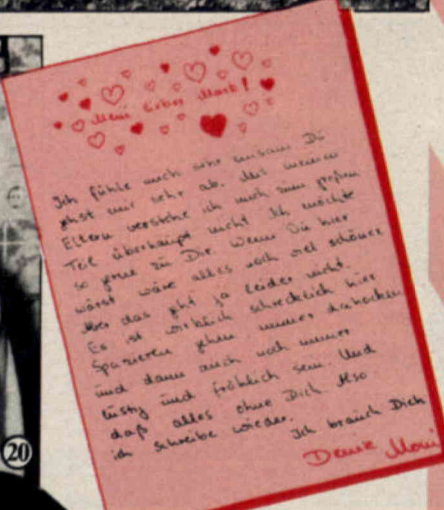 Mein lieber Mark!
Ich fühle mich sehr einsam Du
gehst mir sehr ab. Mit meinen
Eltern verstehe ich mich zum großen
Teil überhaupt nicht Ich möchte
so gerne zu Dir. Wenn Du hier
wärst wäre alles noch viel schöner
Aber das geht ja leider nicht.
Es ist wirklich schrecklich hier.
Spazieren gehen immer dahocken
und dann auch noch immer
lustig und fröhlich sein. Und
daß alles ohne Dich Also
ich schreibe wieder.
Ich brauch Dich
Deine Moni
20